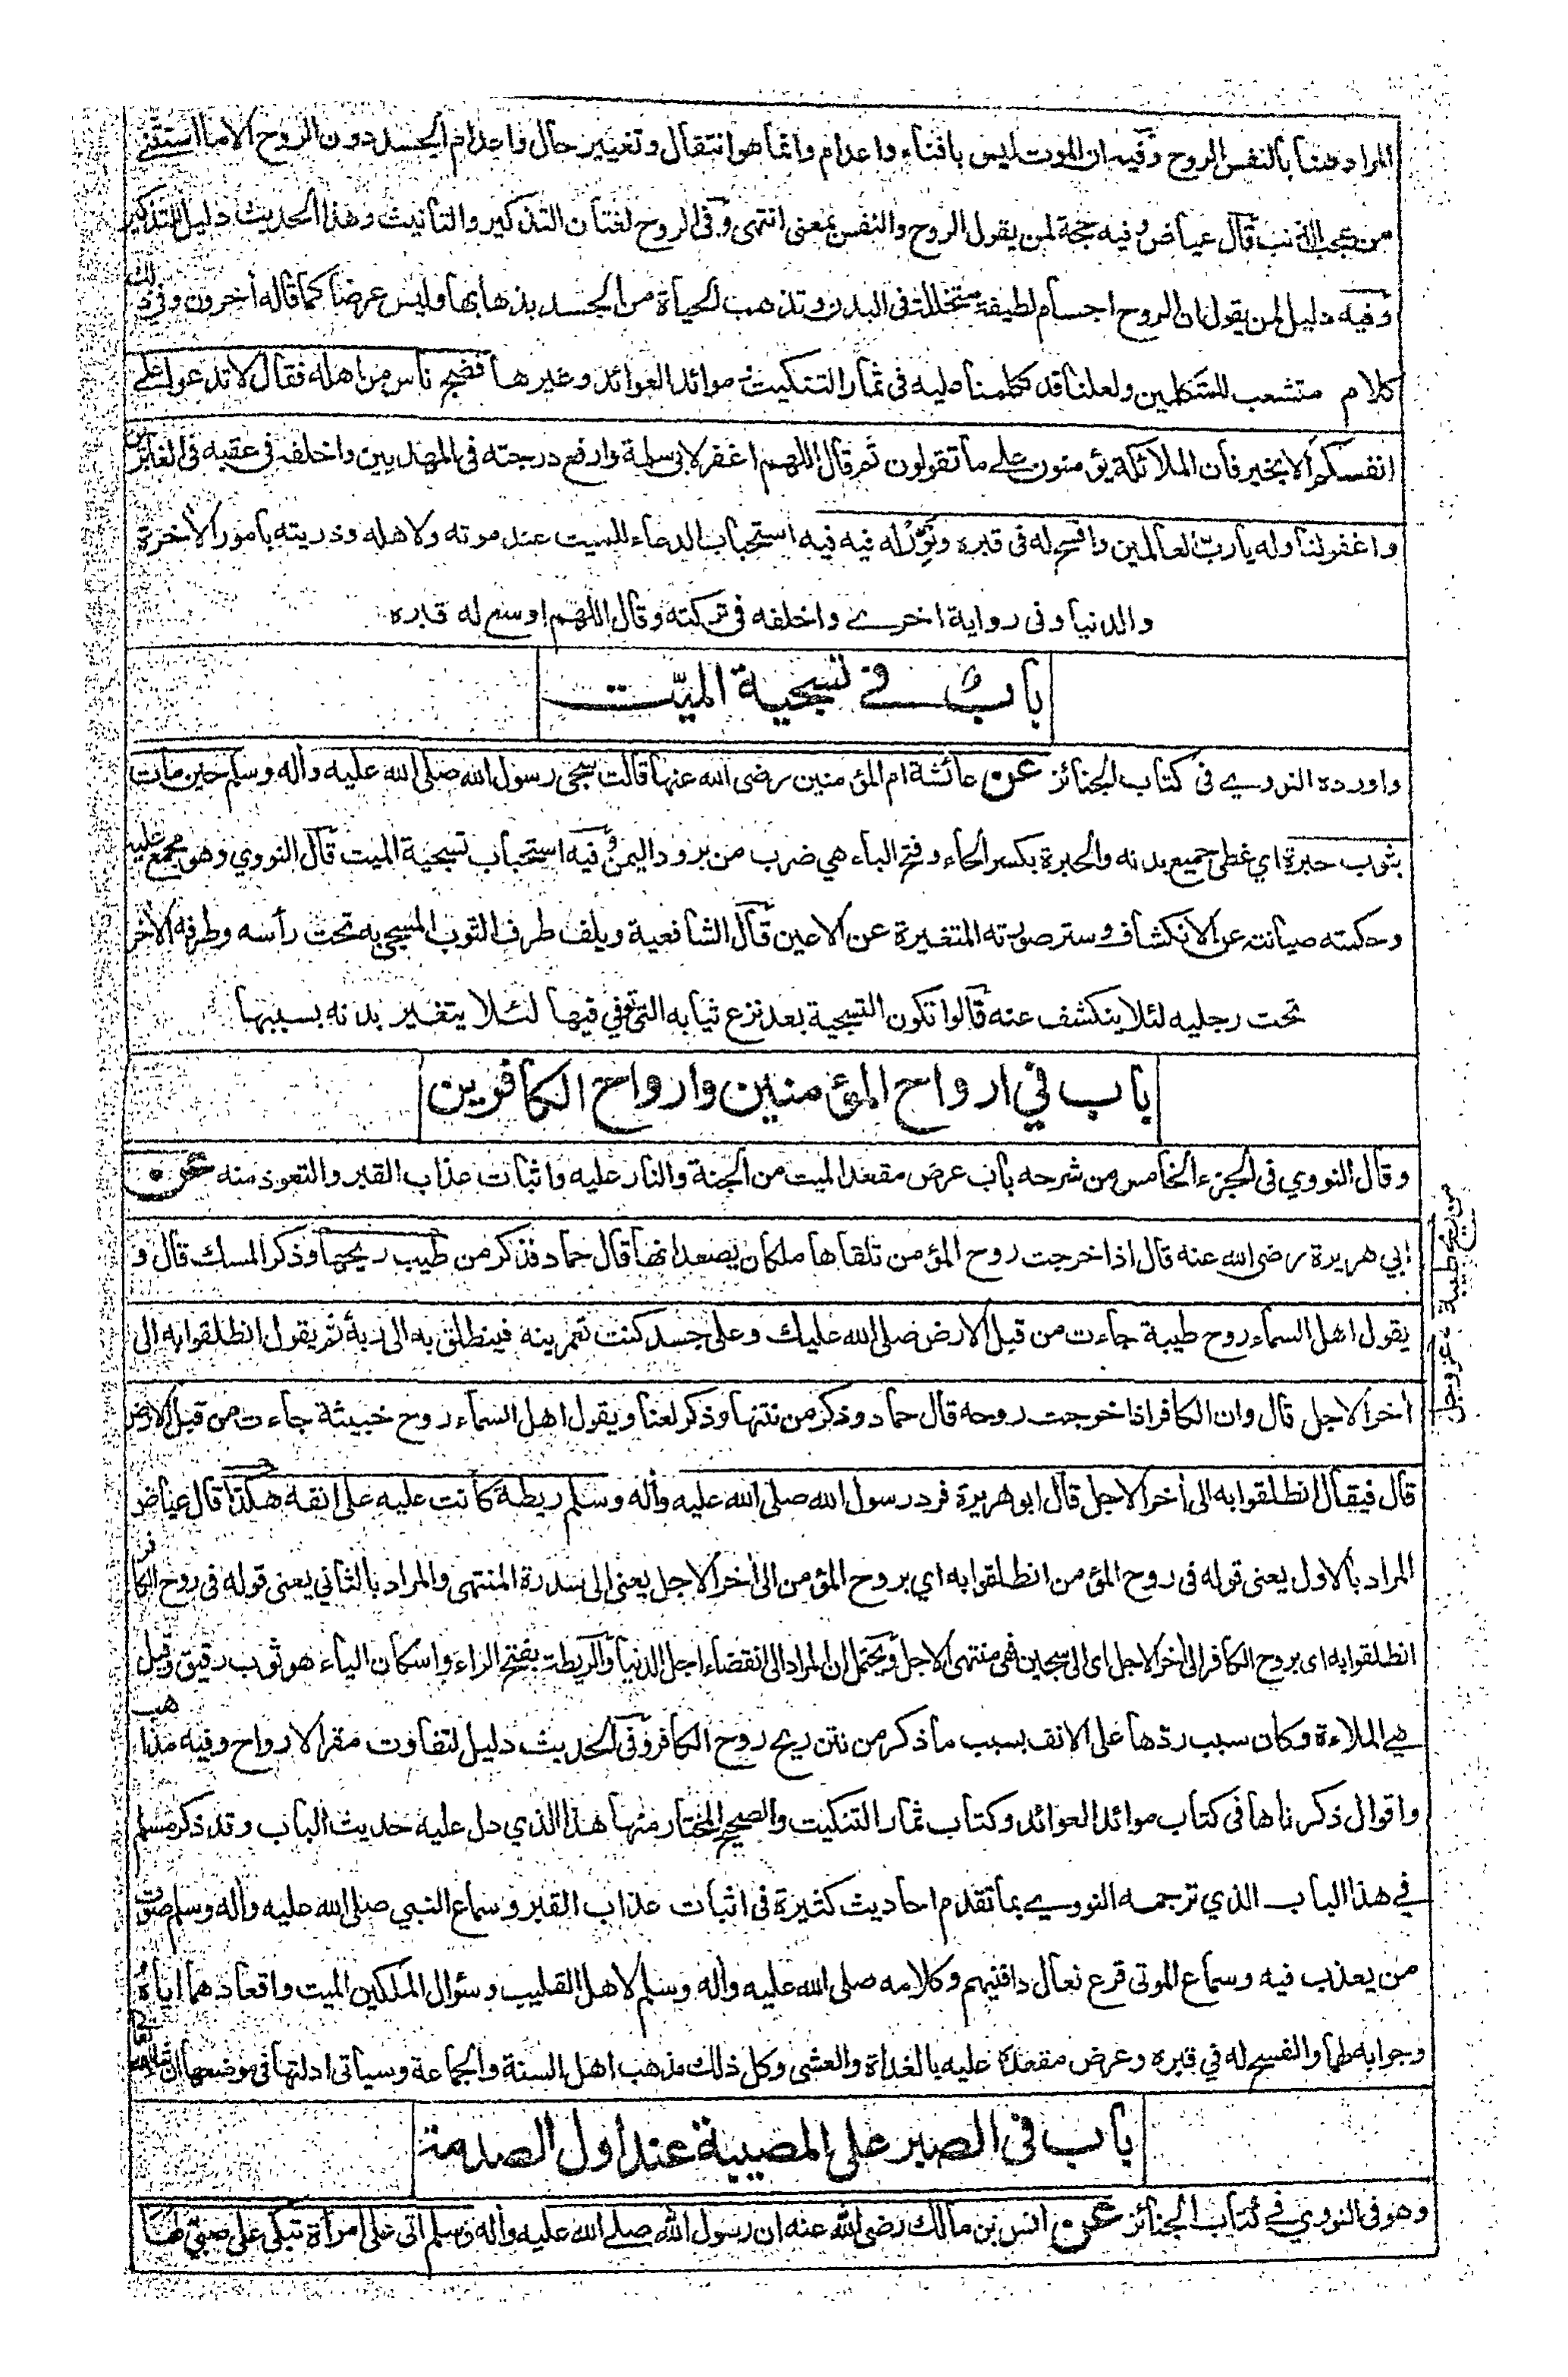 المراد هنا بالنفس الروح وفيه ان الموت ليس بافناء واعدام وانما هو انتقال وتغيير حال واعدام الجسد دون الروح الا ما استثنى
من عجب الذنب قال عياض وفيه حجة لمن يقول الروح والنفس بمعنى انتهى وفى الروح لغتان التذكير والتأنيث وهذا الحديث دليل للتذكير
وفيه دليل لمن يقول ان الروح اجسام لطيفة متخللة فى البدن وتذهب الحياة من الجسد بذهابها وليس عرضا كما قاله أخرون وفى ذلك
كلام متشعب للمتكلمين ولعلنا قد تكلمنا عليه فى ثمار التنكيت وموائد العوائد وغيرها فضج ناس من اهله فقال لا تدعوا على
انفسكم الا بخير فان الملائكة يؤمنون على ما تقولون ثم قال اللهم اغفر لابى سلمة وارفع درجته فى المهديين واخلفه فى عقبه فى الغابرين
واغفر لنا وله يا ربّ العالمين وافسح له فى قبره ونوّر له فيه فيه استحباب الدعاء للميت عند موته ولاهله وذريته بامور الأخرة
والدنيا وفى رواية اخرى واخلفه فى تركته وقال اللهم اوسع له قبره
باب فى تسجية الميّت
واورده النووي فى كتاب الجنائز عن عائشة ام المؤمنين رضى الله عنها قالت سجى رسول الله صلى الله عليه وأله وسلم حين مات
بثوب حبرة اي غطى جميع بدنه والحبرة بكسر الحاء وفتح الباء هي ضرب من برود اليمن وفيه استحباب تسجية الميت قال النووي وهو مجمع عليه
وحكمته صيانته عن الانكشاف وستر صورته المتغيرة عن الاعين قال الشافعية ويلف طرف الثوب المسجى به تحت رأسه وطرفه الأخر
تحت رجليه لئلا ينكشف عنه قالوا تكون التسجية بعد نزع ثيابه التي توفي فيها لئلا يتغير بدنه بسببها
باب في ارواح المؤمنين وارواح الكافرين
وقال النووي فى الجزء الخامس من شرحه باب عرض مقعد الميت من الجنة والنار عليه واثبات عذاب القبر والتعوذ منه عن
ابي هريرة رضى الله عنه قال اذا خرجت روح المؤمن تلقاها ملكان يصعدانها قال حماد فذكر من طيب ريحها وذكر المسك قال و
يقول اهل السماء روح طيبة جاءت من قبل الارض صلى الله عليك وعلى جسد كنت تعمرينه فينطلق به الى ربه ثم يقول انطلقوا به الى
أخر الاجل قال وان الكافر اذا خرجت روحه قال حماد وذكر من نتنها وذكر لعنا ويقول اهل السماء روح خبيثة جاءت من قبل الارض
قال فيقال انطلقوا به الى أخر الاجل قال ابو هريرة فرد رسول الله صلى الله عليه وأله وسلم ريطة كانت عليه على انفه هكذا قال عياض
المراد بالاول يعنى قوله فى روح المؤمن انطلقوا به اي بروح المؤمن الى أخر الاجل يعنى الى سدرة المنتهى والمراد بالثاني يعنى قوله فى روح الكافر
انطلقوا به اى بروح الكافر الى أخر الاجل اى الى سجين فهى منتهى الاجل ويحتمل ان المراد الى انقضاء اجل الدنيا والريطة بفتح الراء واسكان الياء هو ثوب رقيق وقيل
هي الملاءة وكان سبب ردّها على الانف بسبب ما ذكر من نتن ريح روح الكافر وفى الحديث دليل لتفاوت مقر الارواح وفيه مذاهب
واقوال ذكرناها فى كتاب موائد العوائد وكتاب ثمار التنكيت والصحيح المختار منها هذا الذي دل عليه حديث الباب وقد ذكر مسلم
في هذا الباب الذي ترجمه النووي بما تقدم احاديث كثيرة فى اثبات عذاب القبر وسماع النبي صلى الله عليه وأله وسلم صوت
من يعذب فيه وسماع الموتى قرع نعال دافنيهم وكلامه صلى الله عليه وأله وسلم لاهل القليب وسؤال الملكين الميت واقعادهما اياه
وجوابه لهما والفسح له في قبره وعرض مقعده عليه بالغداة والعشى وكل ذلك مذهب اهل السنة والجماعة وسياتى ادلتها فى موضعها ان شاء الله تعالى
باب فى الصبر على المصيبة عند اول الصدمة
وهو فى النووي في كتاب الجنائز عن انس بن مالك رضى الله عنه ان رسول الله صلى الله عليه وأله وسلم اتى على امرأة تبكى على صبي لها
عز وجل